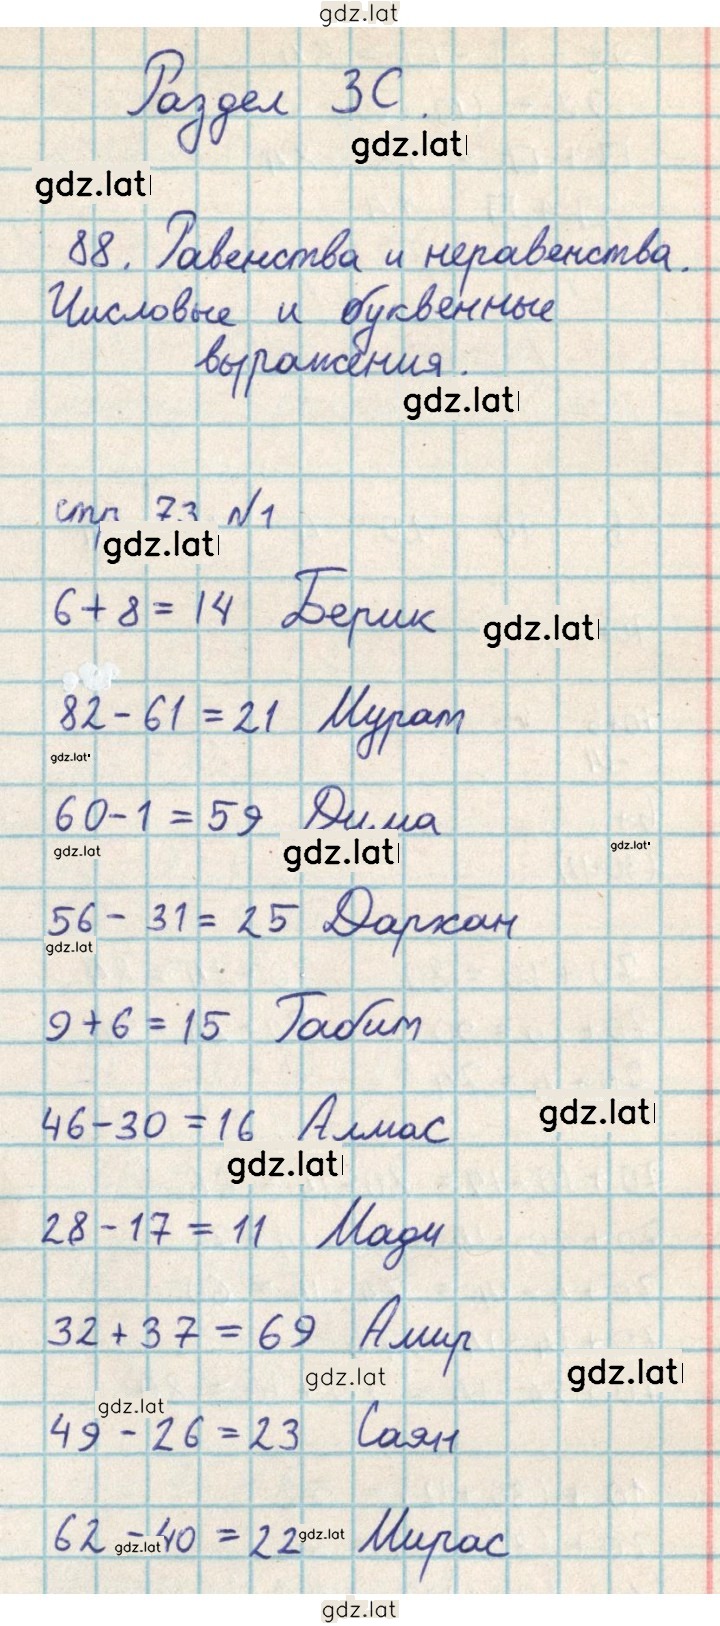 gdz.lat
Раздел 3С.
gdz.lat
gdz.lat
88. Равенства и неравенства.
Числовые и буквенные
выражения.
gdz.lat
стр 73 №1
gdz.lat
6+8=14 Берик
gdz.lat
82-61=21 Мурат
gdz.lat
60-1=59 Дима
gdz.lat gdz.lat gdz.lat
56-31=25 Дархан
gdz.lat
9+6=15 Габит
gdz.lat
46-30=16 Алмас
gdz.lat
28-17=11 Мади
32+37=69 Амир
gdz.lat gdz.lat
gdz.lat
49-26=23 Саян
62-40=22 Мирас
gdz.lat gdz.lat
gdz.lat